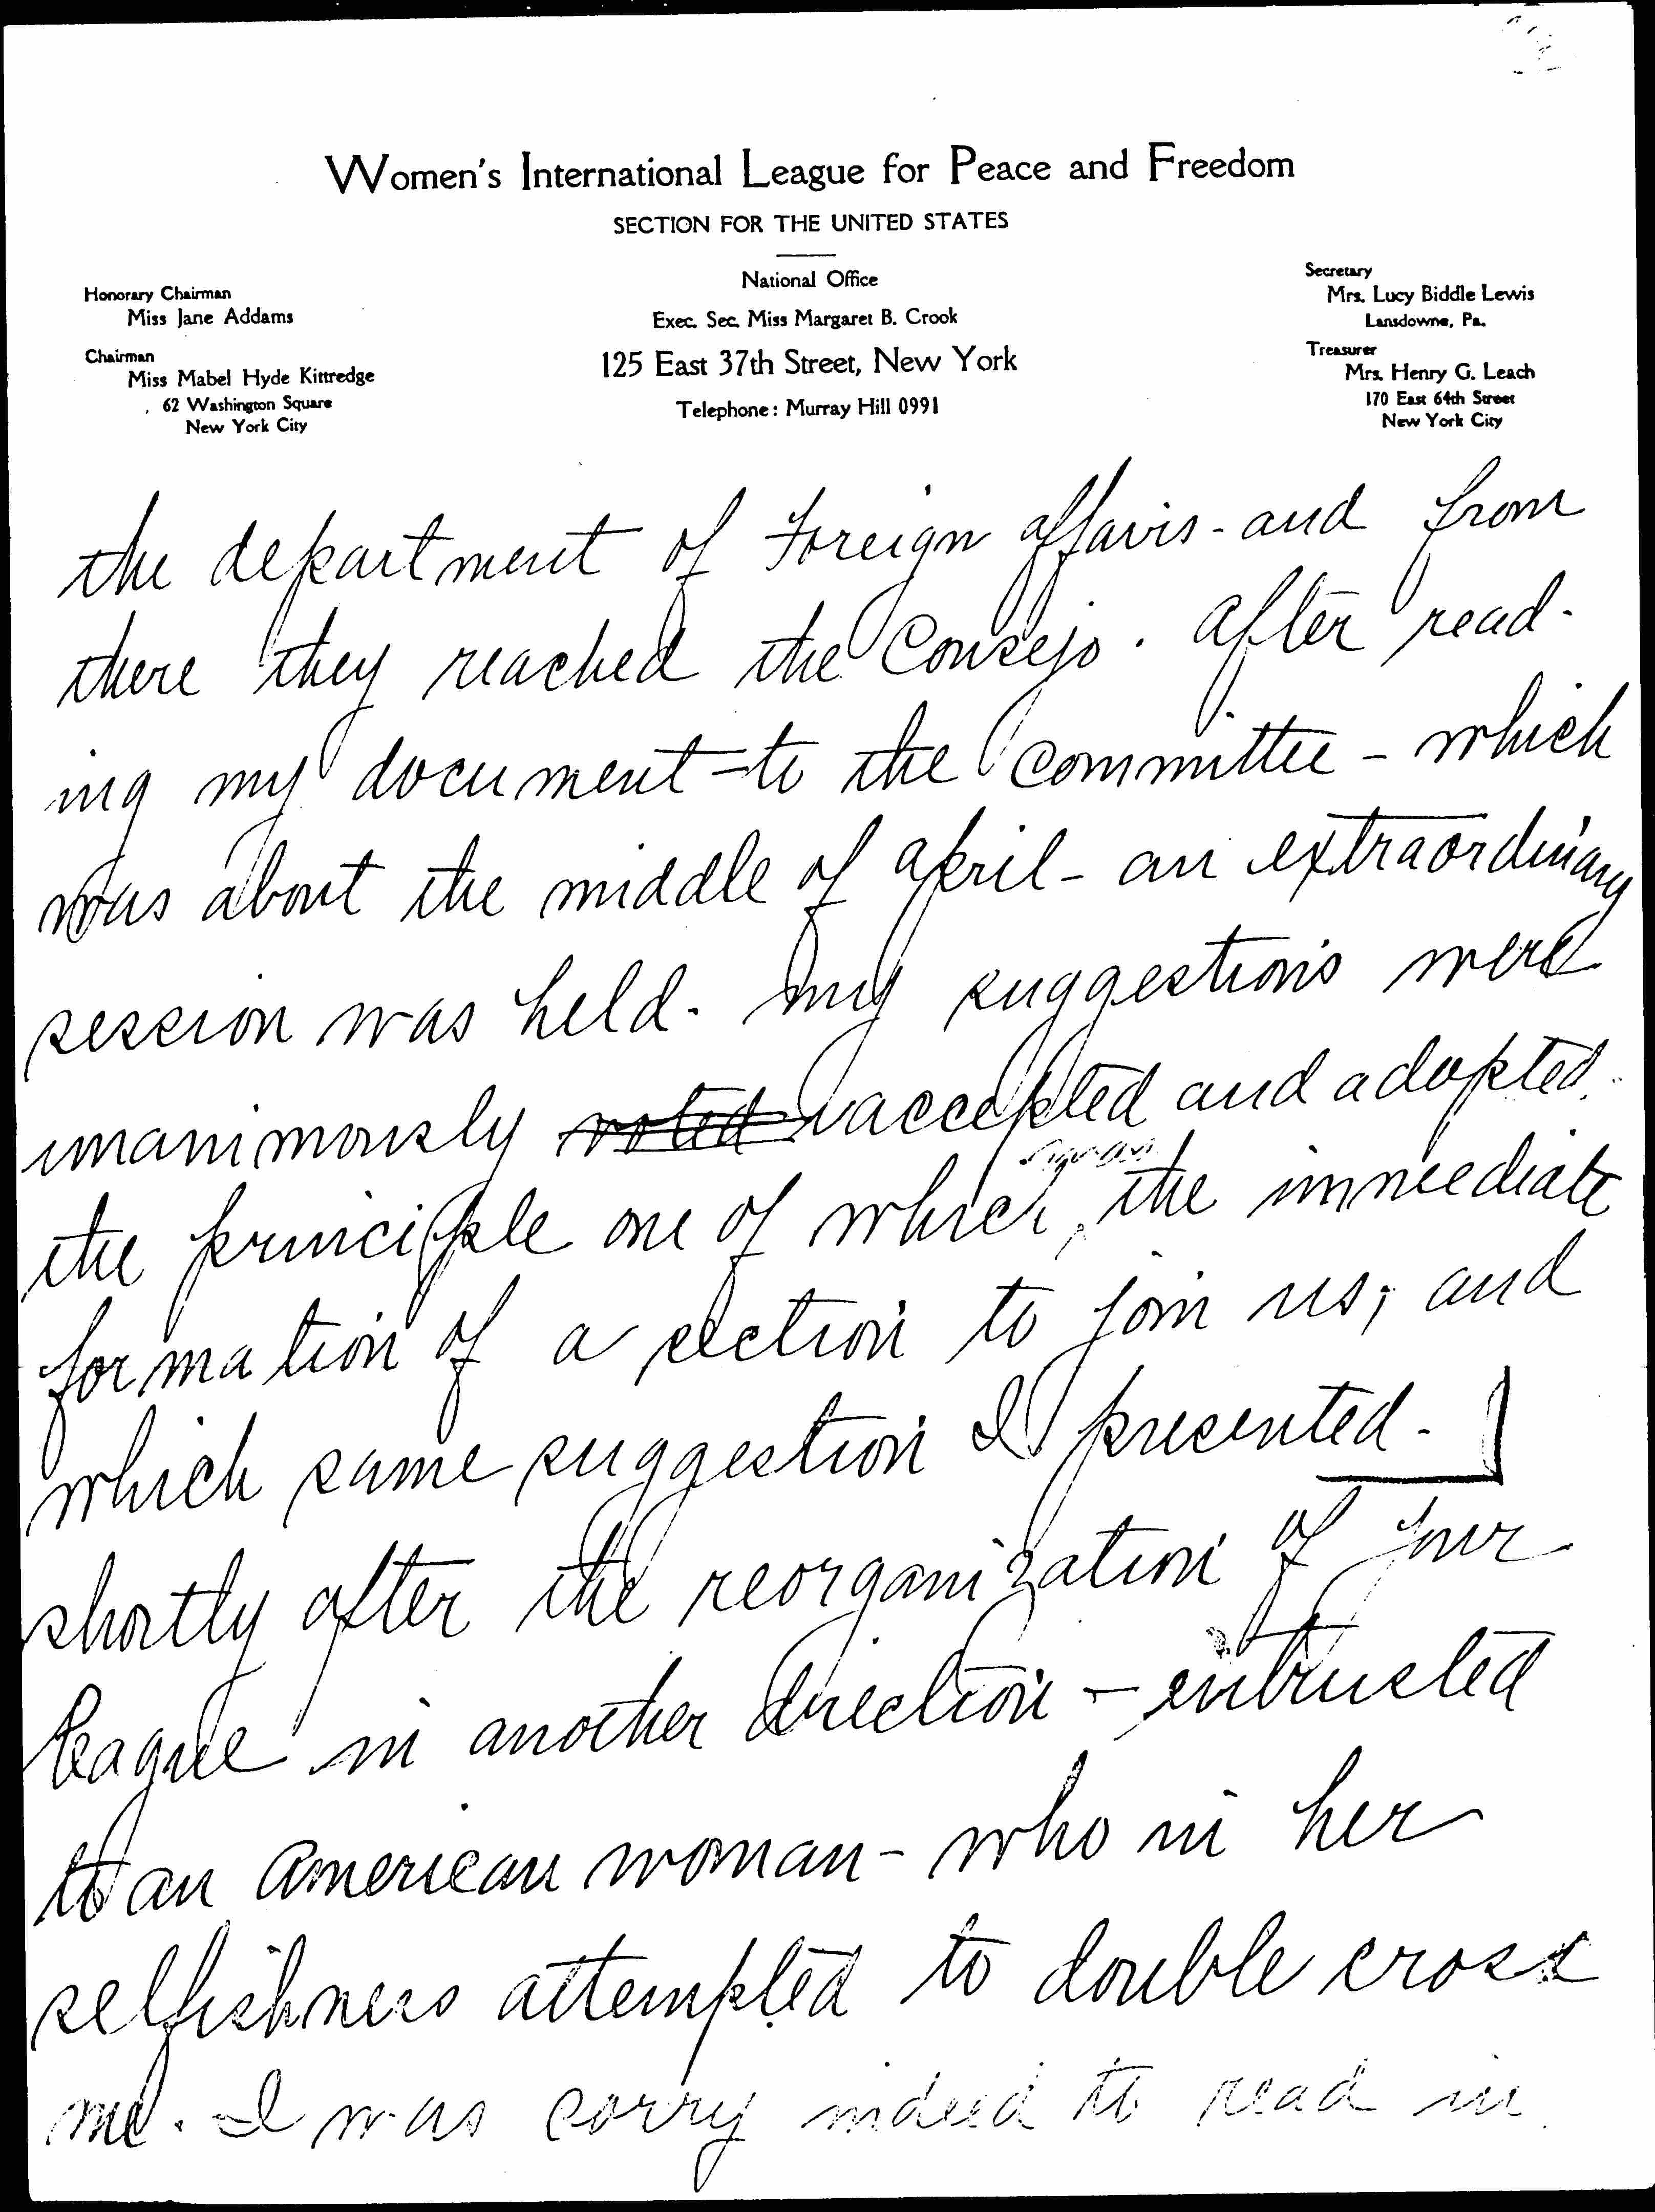 Women's International League for Peace and Freedom
SECTION FOR THE UNITED STATES
Honorary Chairman
Miss Jane Addams
Chairman
Miss Mabel Hyde Kittredge
62 Washington Square
New York City
National Office
Exec. Sec. Miss Margaret B. Crook
125 East 37th Street, New York
Telephone: Murray Hill 0991
Secretary
Mrs. Lucy Biddle Lewis
Lansdowne, Pa.
Treasurer
Mrs. Henry G. Leach
170 East 64th Street
New York City
the department of Foreign affavis - and from
there they reached the Consejo. After read-
ing my document - to the committee - which
was about the middle of April - an extraordinary
session was held. My suggestions were
unanimously voted accepted and adopted.
the principle one of which, the immediate
formation of a section to join us; and
which same suggestion I presented. ]
shortly after the reorganization of your
league in another direction - entrusted
to an American woman - who in her
selfishness attempted to double cross
me. I was sorry indeed to read in